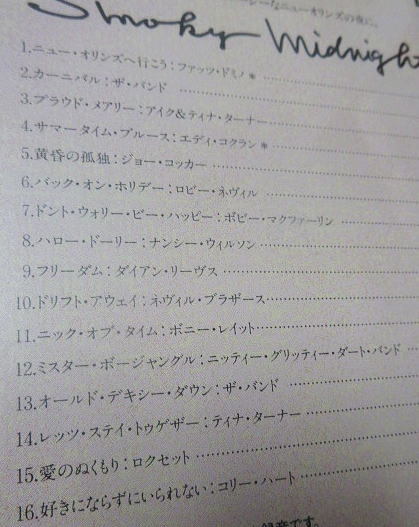 なニューオリンズの夜に。
Smoky Midnight
1.ニュー・オリンズへ行こう:ファッツ・ドミノ＊
2.カーニバル:ザ・バンド
3.プラウド・メアリー:アイク&ティナ・ターナー
4.サマータイム・ブルース:エディ・コクラン＊
5.黄昏の孤独:ジョー・コッカー
6.バック・オン・ホリデー:ロビー・ネヴィル
7.ドント・ウォリー・ビー・ハッピー:ボビー・マクファーリン
8.ハロー・ドーリー:ナンシー・ウィルソン
9.フリーダム:ダイアン・リーヴス
10.ドリフト・アウェイ:ネヴィル・ブラザース
11.ニック・オブ・タイム:ボニー・レイット
12.ミスター・ボージャングル:ニッティー・グリッティー・ダート・バンド
13.オールド・デキシー・ダウン:ザ・バンド
14.レッツ・ステイ・トゥゲザー:ティナ・ターナー
15.愛のぬくもり:ロクセット
16.好きにならずにいられない:コリー・ハート
録音です。